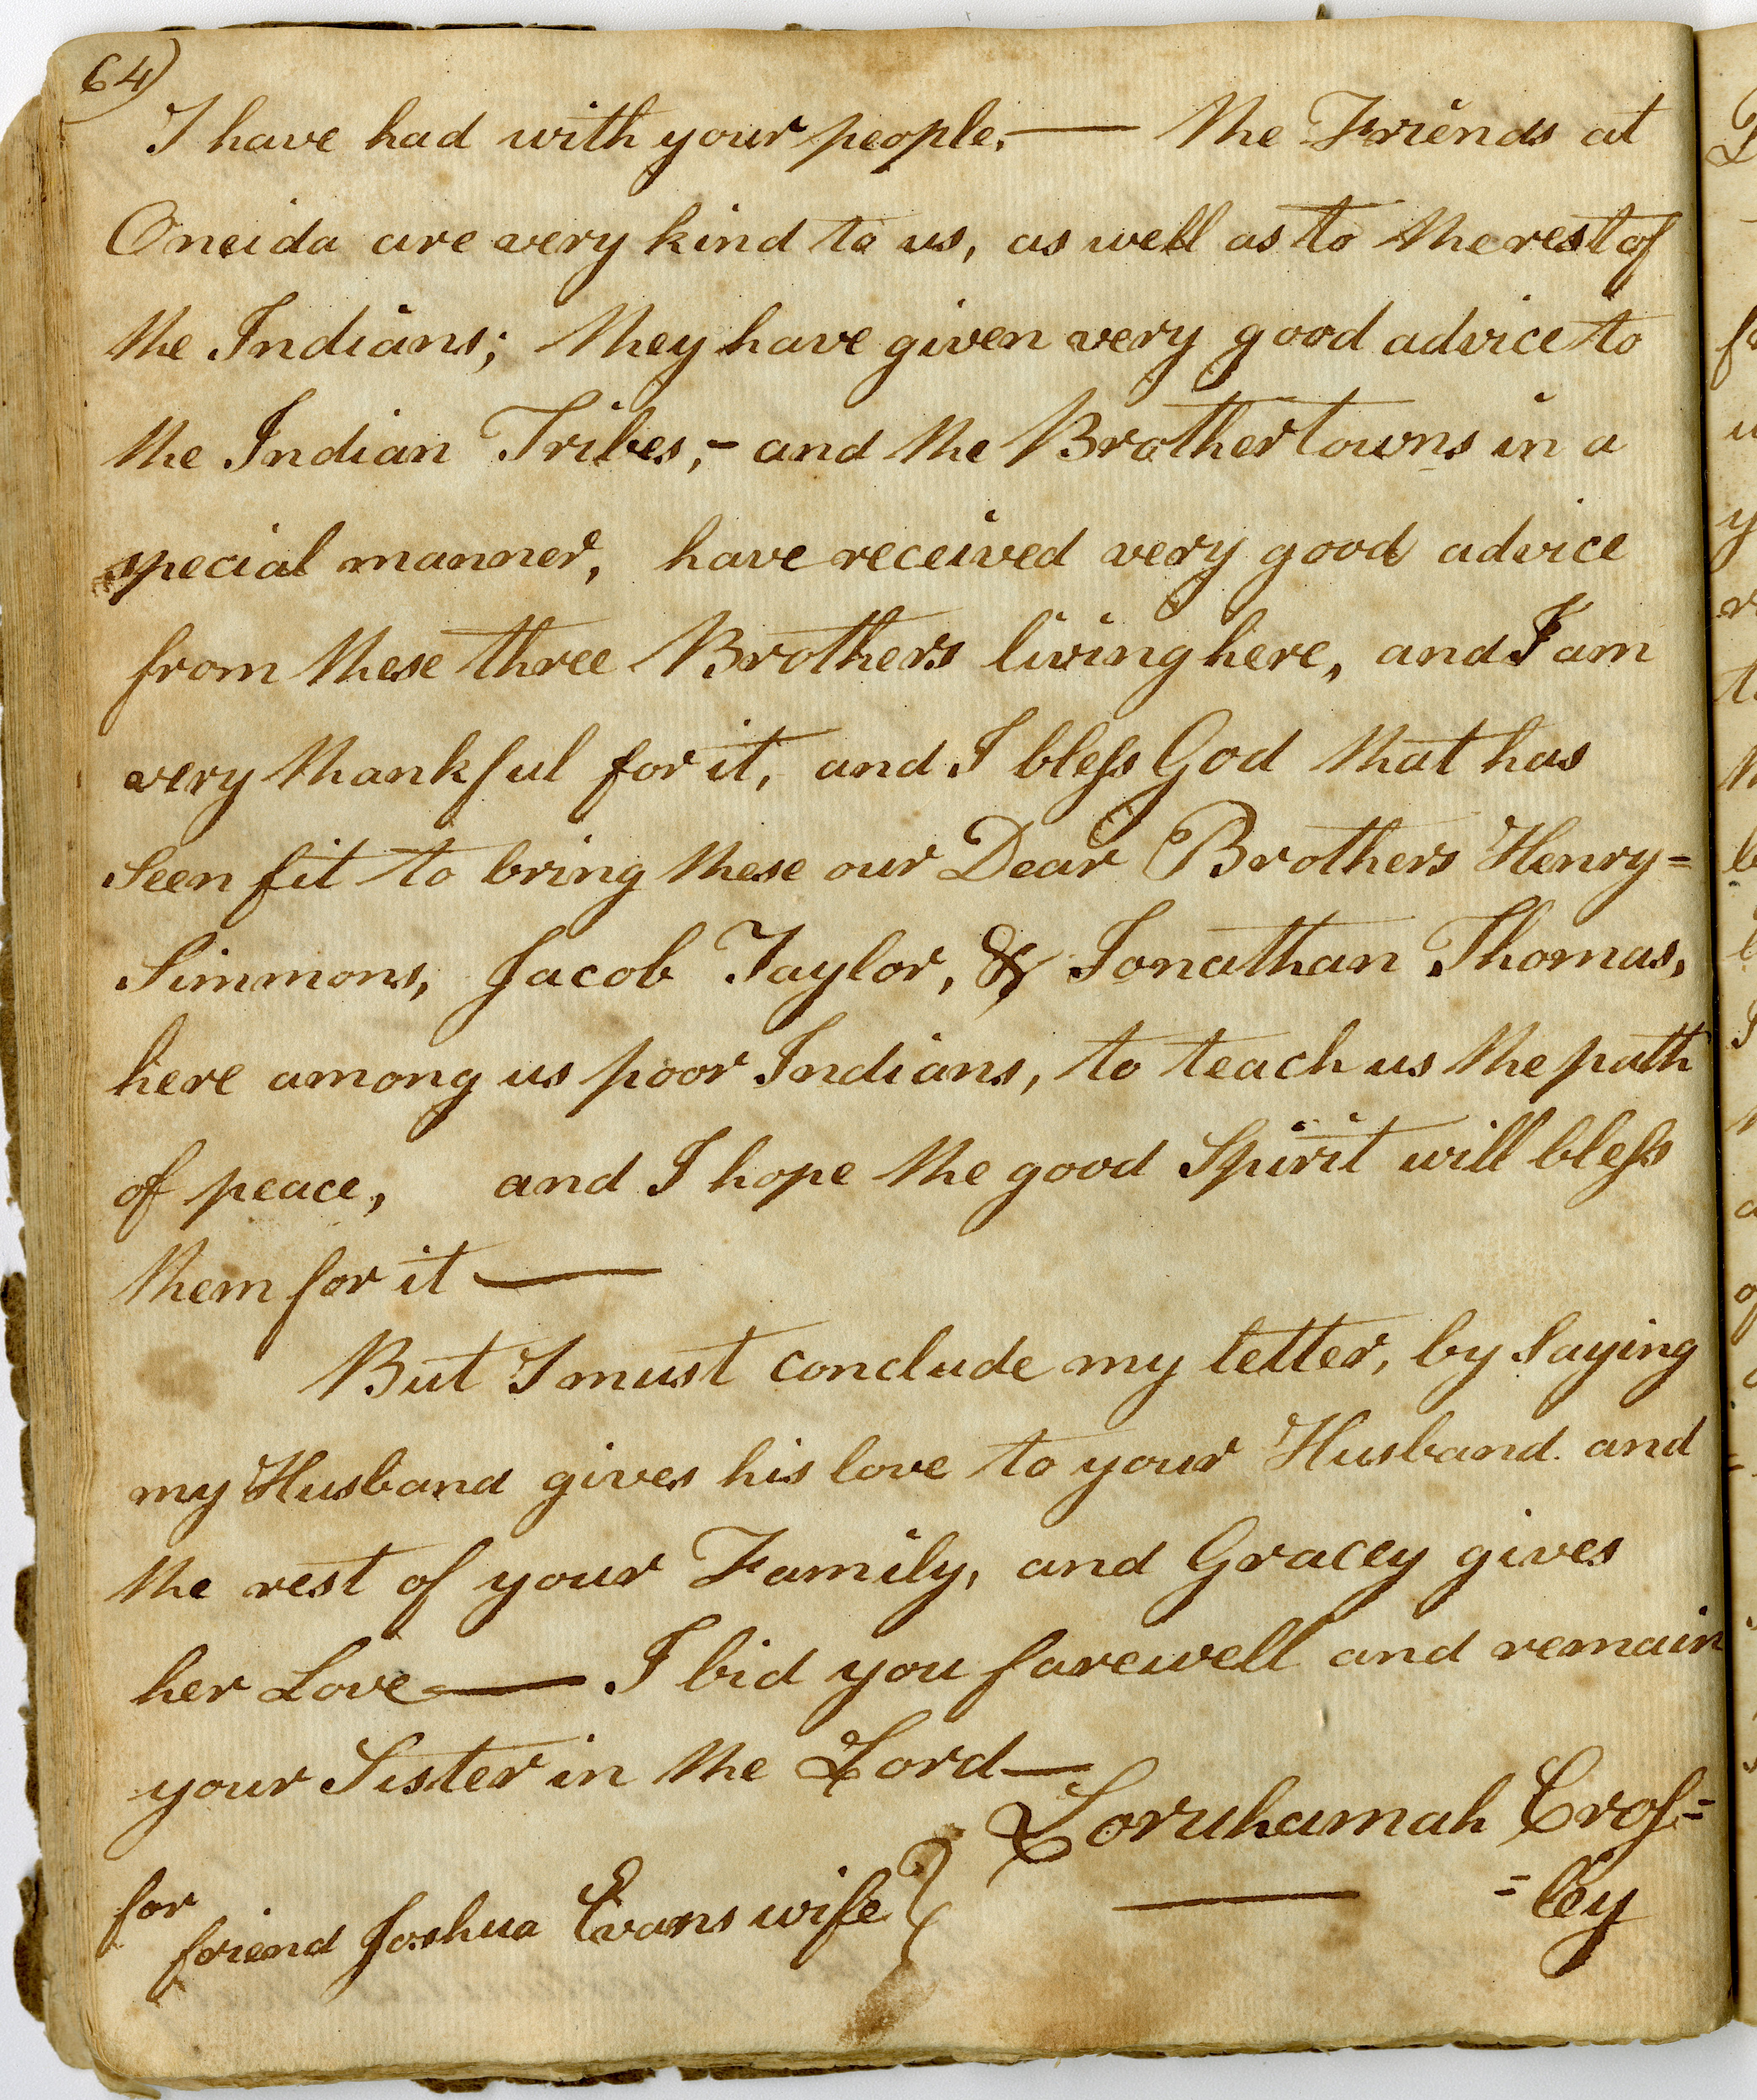 64)
I have had with your people, — the Friends at
Oneida are very kind to us, as well as to the rest of
the Indians; they have given very good advice to
the Indian Tribes,- and the Brothertowns in a
special manner, have received very good advice
from these three Brothers living here, and I am
very thankful for it, and I bleſs God that has
seen fit to bring these our Dear Brothers Henry=
Simmons, Jacob Taylor, & Jonathan Thomas,
here among us poor Indians, to teach us the path
of peace, and I hope the good Spirit will bleſs
them for it —
But I must conclude my letter, by saying
my Husband gives his love to your Husband and
the rest of your Family, and Gracey gives
her Love — I bid you farewell and remain
your Sister in the Lord —
Loruhamah Croſ=
=ley
for
friend Joshua Evans wife }